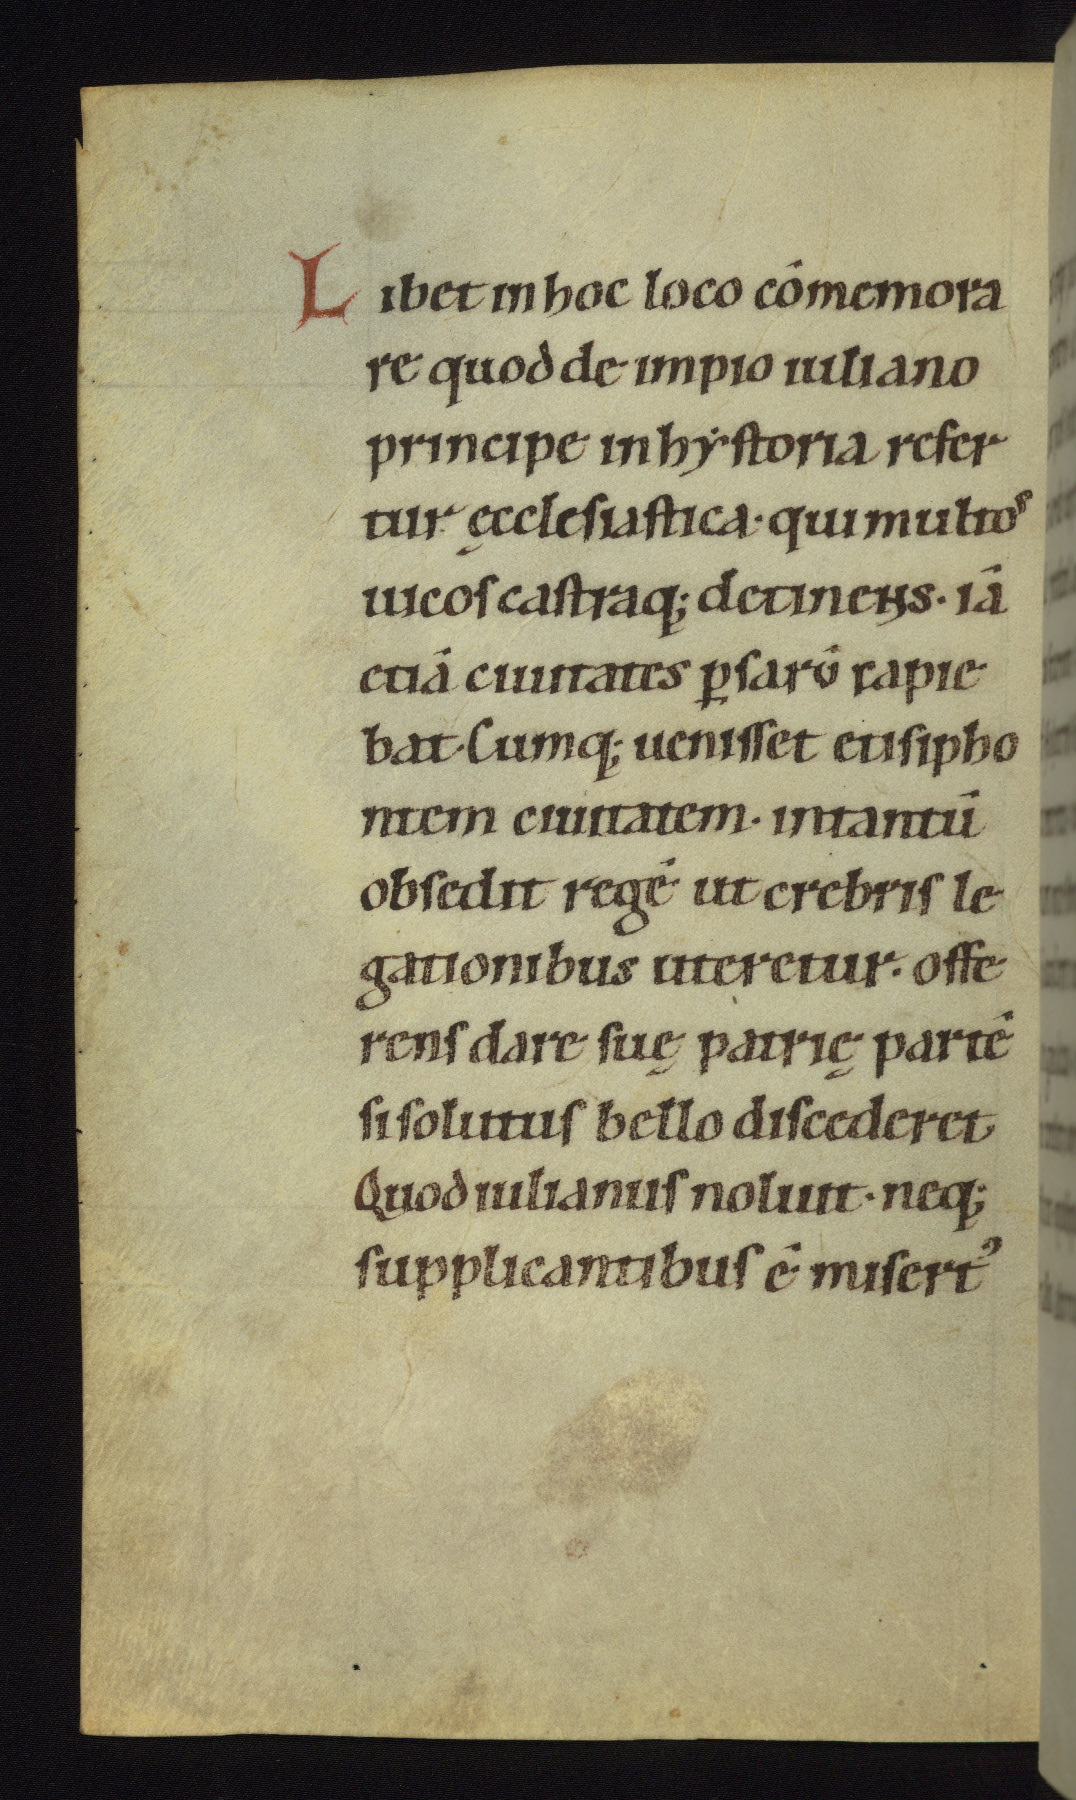 Libet in hoc loco cōmemora
re quod de impio iuliano
principe in hẏſtoria refer
tur ęccleſiaſtica· qui multos
uicoſ caſtraq; detinens· iā
etiā ciuitates ꝑſarū rapie
bat· Cumq; ueniſſet etiſipho
ntem ciuitatem· intantū
obſedit regē ut crebriſ le
gationibus uteretur· offe
renſ dare ſuę patrię partē
ſi ſolutuſ bello diſcederet
Quod iulianuſ noluit· neq;
ſupplicantibuſ ē miſertꝰ